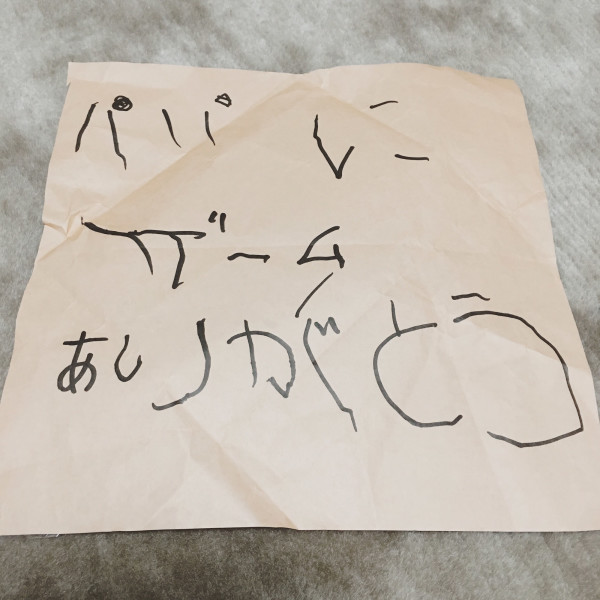 パパ に
ゲーム
ありがとう